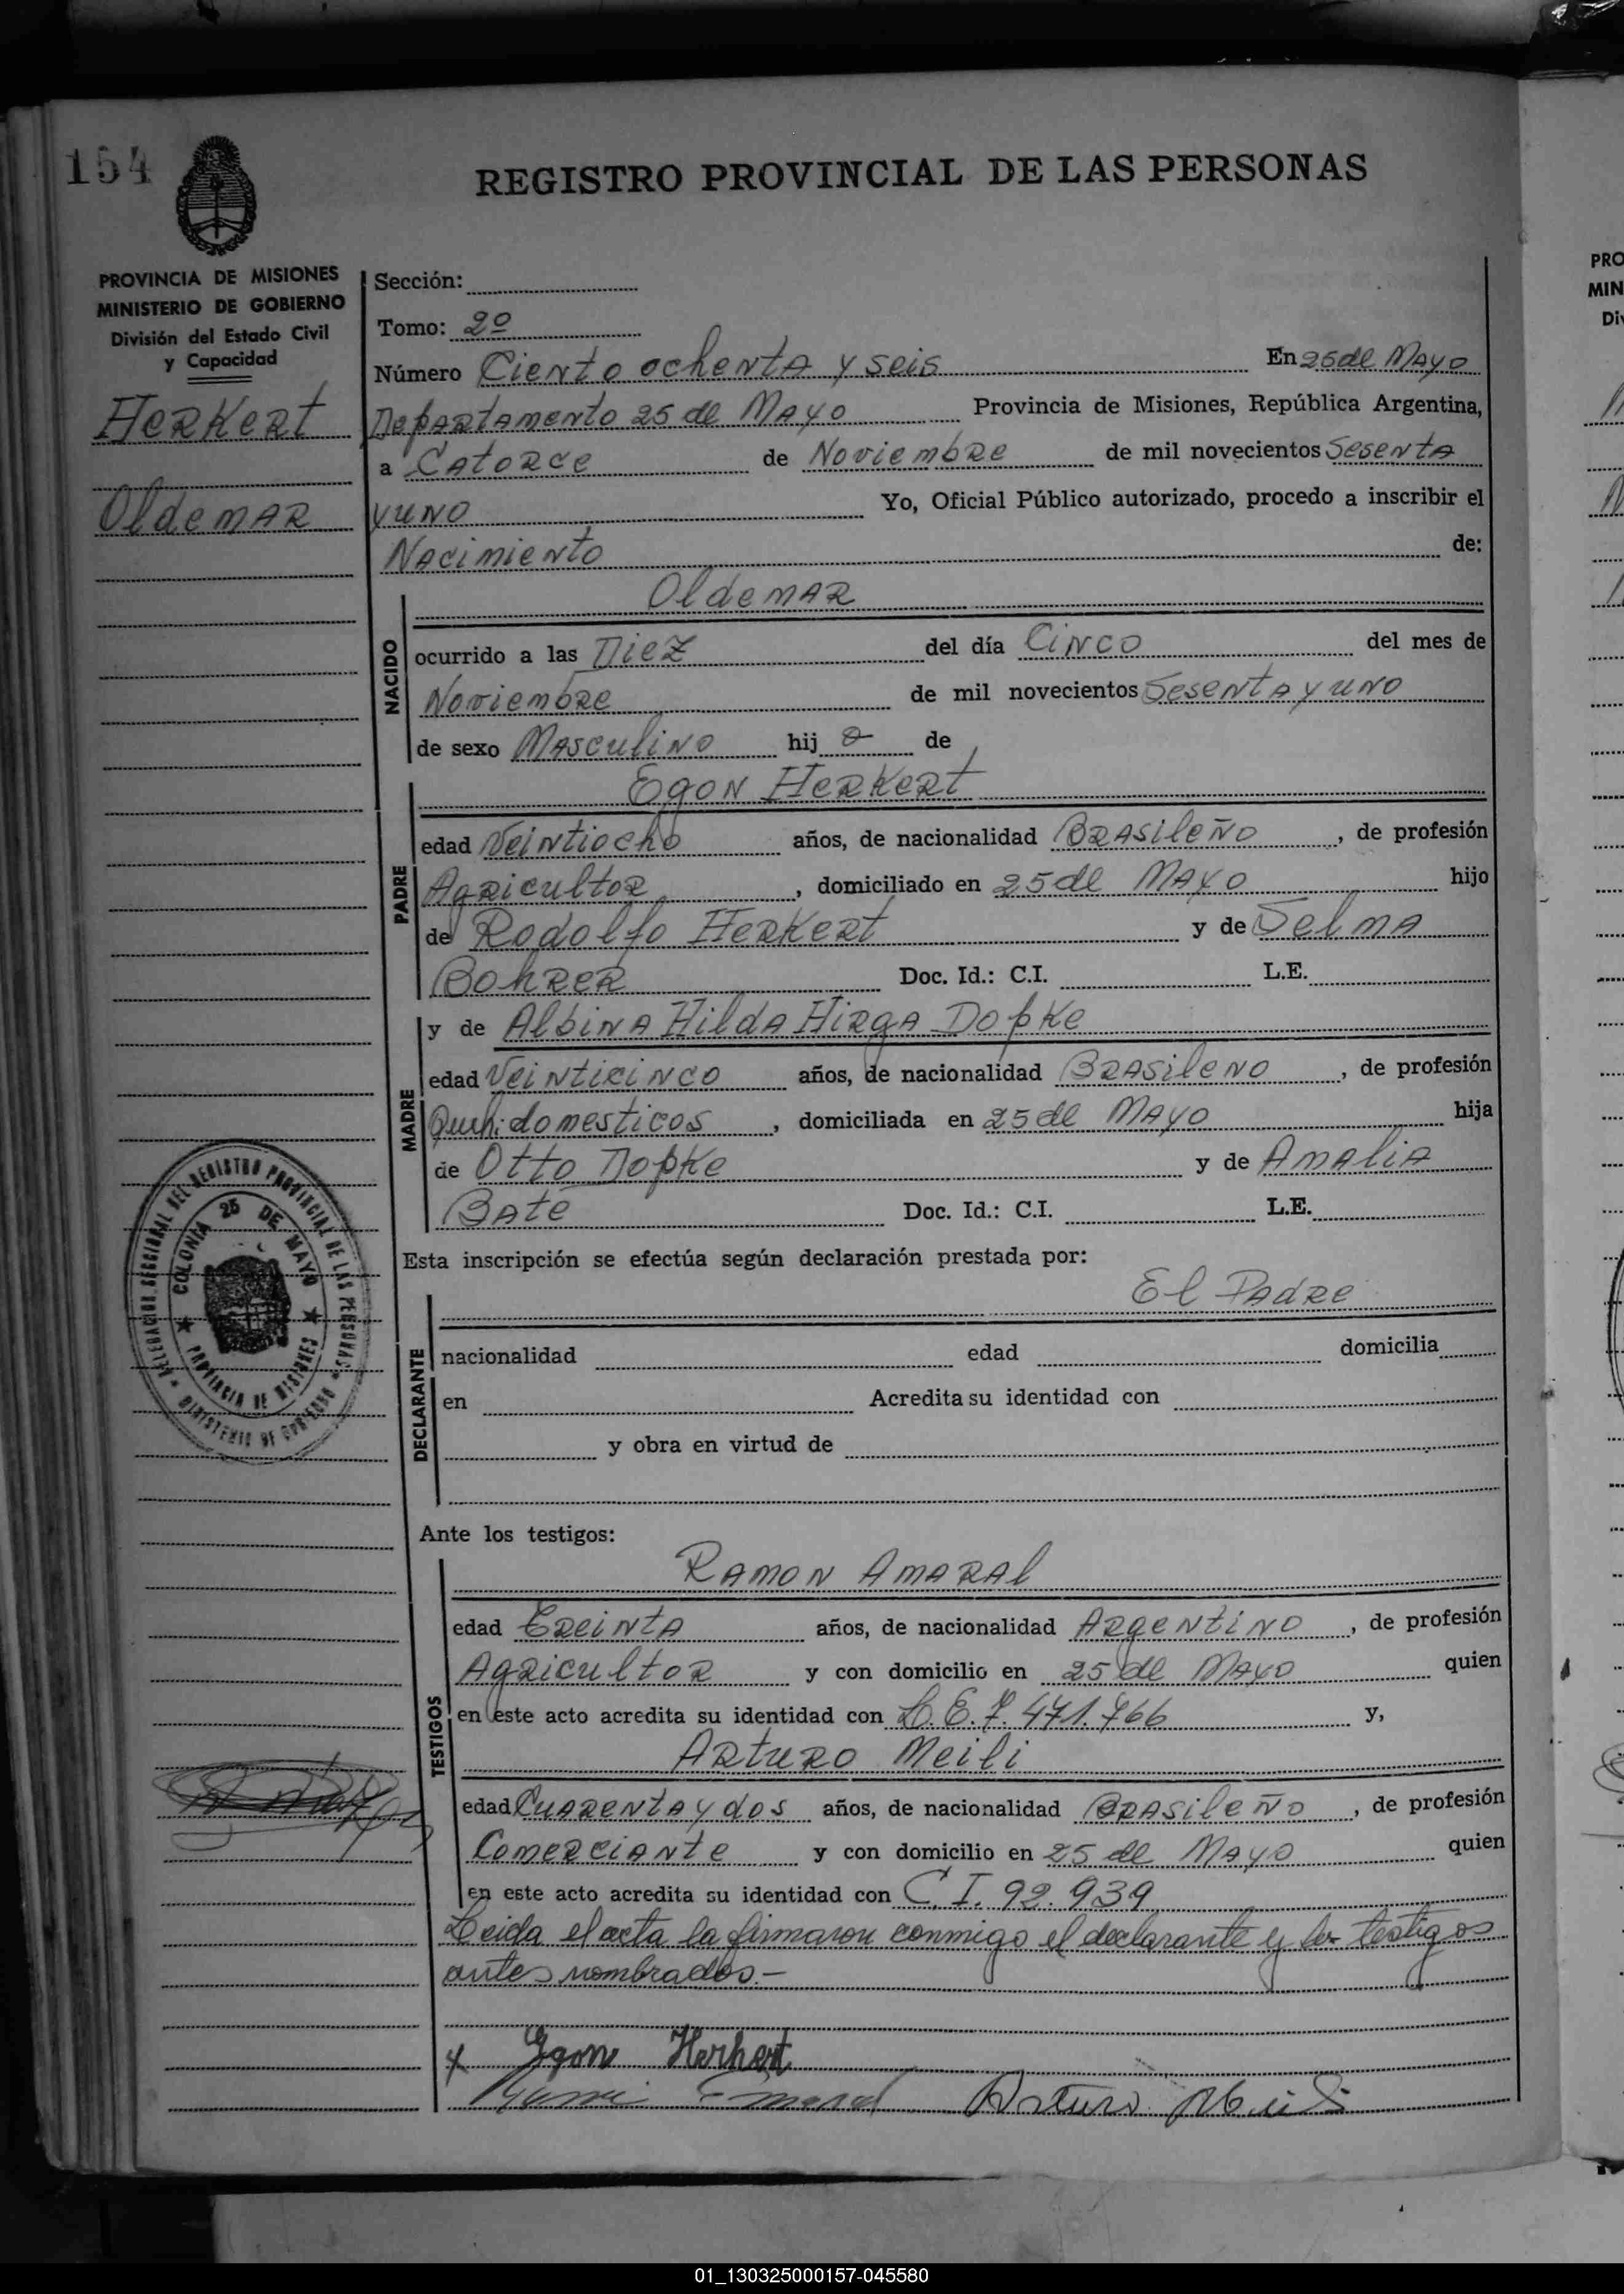 154
REGISTRO PROVINCIAL DE LAS PERSONAS
PROVINCIA DE MISIONES
MINISTERIO DE GOBIERNO
División del Estado Civil
y Capacidad
Herkert
Oldemar
Sección:
Tomo: 2º
Número Ciento ochenta y seis En 25 de Mayo
Departamento 25 de Mayo Provincia de Misiones, República Argentina,
a Catorce de Noviembre de mil novecientos Sesenta
y uno Yo, Oficial Público autorizado, procedo a inscribir el
Nacimiento de:
NACIDO
Oldemar
ocurrido a las Diez del día Cinco del mes de
Noviembre de mil novecientos Sesenta y uno
de sexo Masculino hij o de
PADRE
Egon Herkert
edad Veintiocho años, de nacionalidad Brasileño, de profesión
Agricultor, domiciliado en 25 de Mayo hijo
de Rodolfo Herkert y de Selma
Bohrer Doc. Id.: C.I. L.E.
MADRE
y de Albina Hilda Hirga Dopke
edad Veinticinco años, de nacionalidad Brasileno, de profesión
domesticos, domiciliada en 25 de Mayo hija
de Otto Dopke y de Amalia
Bate Doc. Id.: C.I. L.E.
Esta inscripción se efectúa según declaración prestada por:
DECLARANTE
El Padre
nacionalidad edad domicilia
en Acredita su identidad con
y obra en virtud de
DELEGACION SECCIONAL DEL REGISTRO PROVINCIAL DE LAS PERSONAS
MINISTERIO DE GOBIERNO
COLONIA 25 DE MAYO
PROVINCIA DE MISIONES
Ante los testigos:
TESTIGOS
Ramon Amaral
edad Treinta años, de nacionalidad Argentino, de profesión
Agricultor y con domicilio en 25 de Mayo quien
en este acto acredita su identidad con L.E. 7.471.766 y,
Arturo Meili
edad Cuarenta y dos años, de nacionalidad Brasileño, de profesión
Comerciante y con domicilio en 25 de Mayo quien
en este acto acredita su identidad con C.I. 92.939
Leida el acta la firmaron conmigo el declarante y los testigos
antes nombrados.-
x Egon Herkert
Arturo Meili
PRO
MIN
Div
01_130325000157-045580